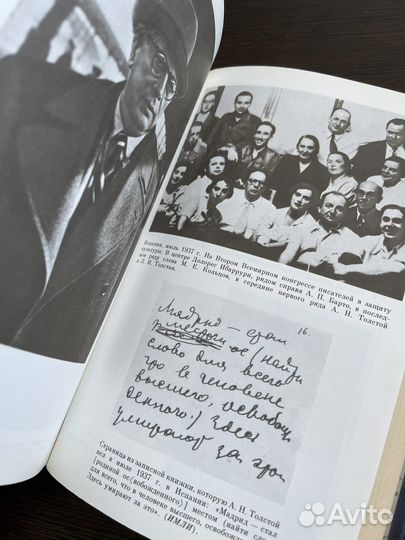 Испания, июль 1937 г. На Втором Всемирном конгрессе писателей в защиту
культуры. В центре Долорес Ибаррури, рядом справа А. П. Барто, в послед-
нем ряду слева М. Е. Кольцов, в середине первого ряда А. Н. Толстой
и Л. И. Толстая.
16.
Мадрид — стал
местом ос (найти
слово для всего
что в человеке
высшего, освобож
денного.) Здесь
умирают за это
Страница из записной книжки, которую А. Н. Толстой
вел в июле 1937 г. в Испании: «Мадрид — стал
[родиной ос(вобожденного)] местом (найти сло
для всего, что в человеке высшего, освобожд
Здесь умирают за это». (ИМЛИ).
Avito